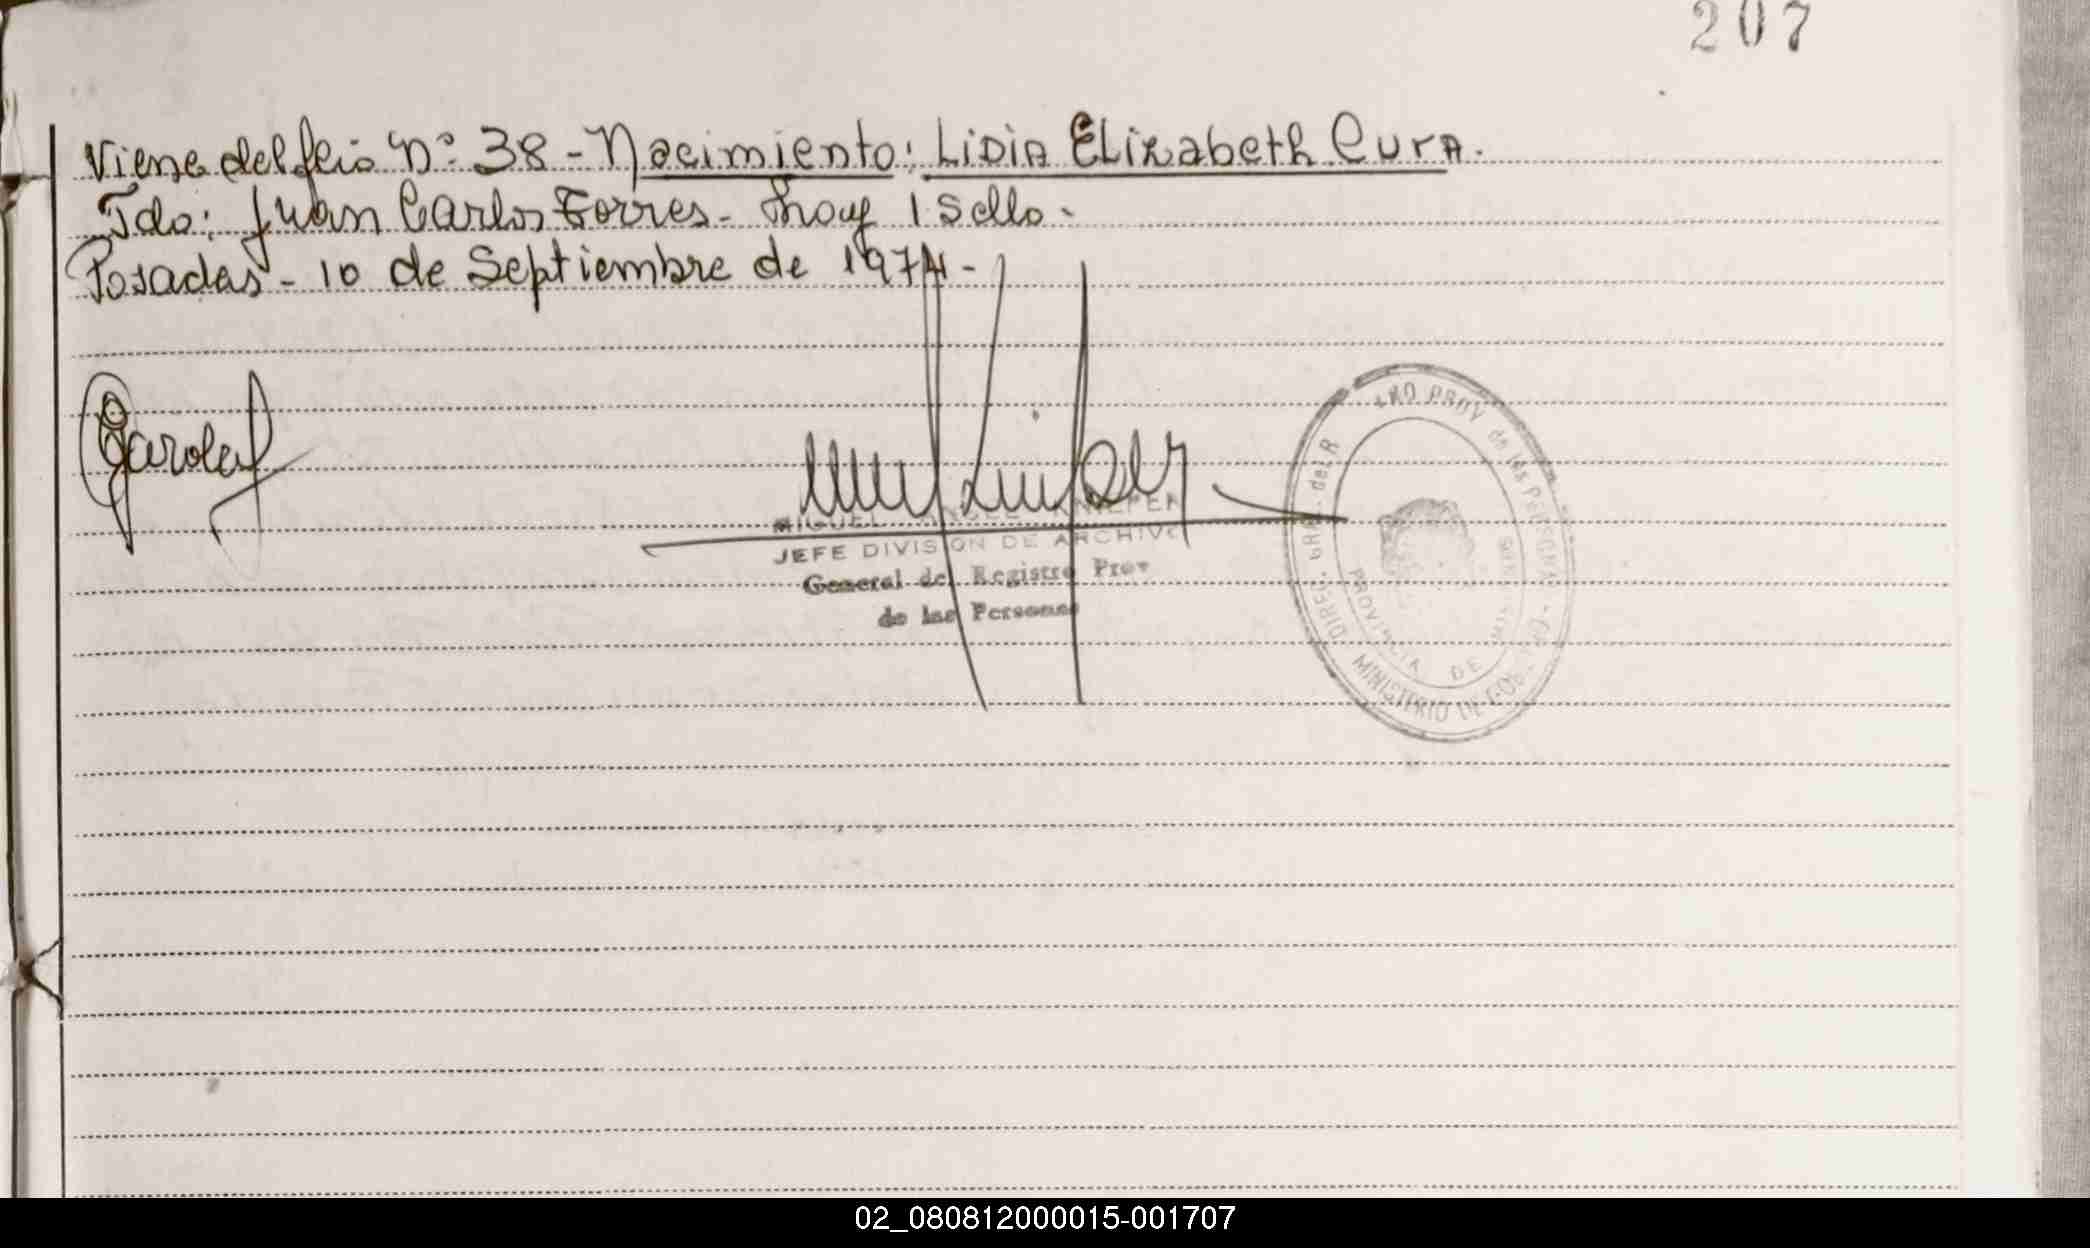 207
Viene del folio Nº 38 - Nacimiento: Lidia Elizabeth Cura.
Fdo: Juan Carlos Torres - hay 1 Sello -
Posadas - 10 de Septiembre de 1974 -
MIGUEL ANGEL
JEFE DIVISION DE ARCHIVO
General del Registro Prov
de las Personas
DIREC. GRAL. del R PROV de las PERSONAS
MINISTERIO DE GOB.
PROVINCIA DE MISIONES
02_080812000015-001707